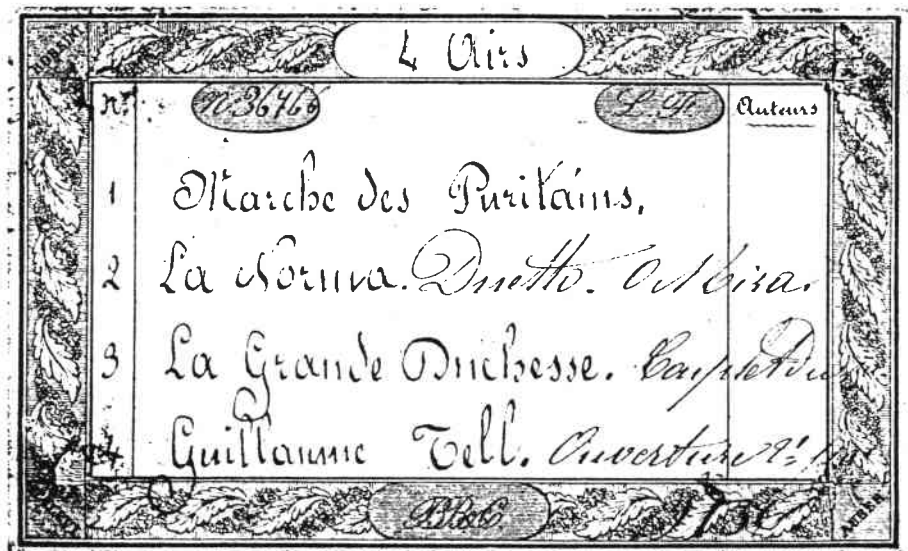 4 Airs
Nos N. 36766 L. F. Auteurs
1 Marche des Puritains.
2 La Norma. Duetto. O Mira.
3 La Grande Duchesse.
4 Guillaume Tell. Ouverture
AUBER